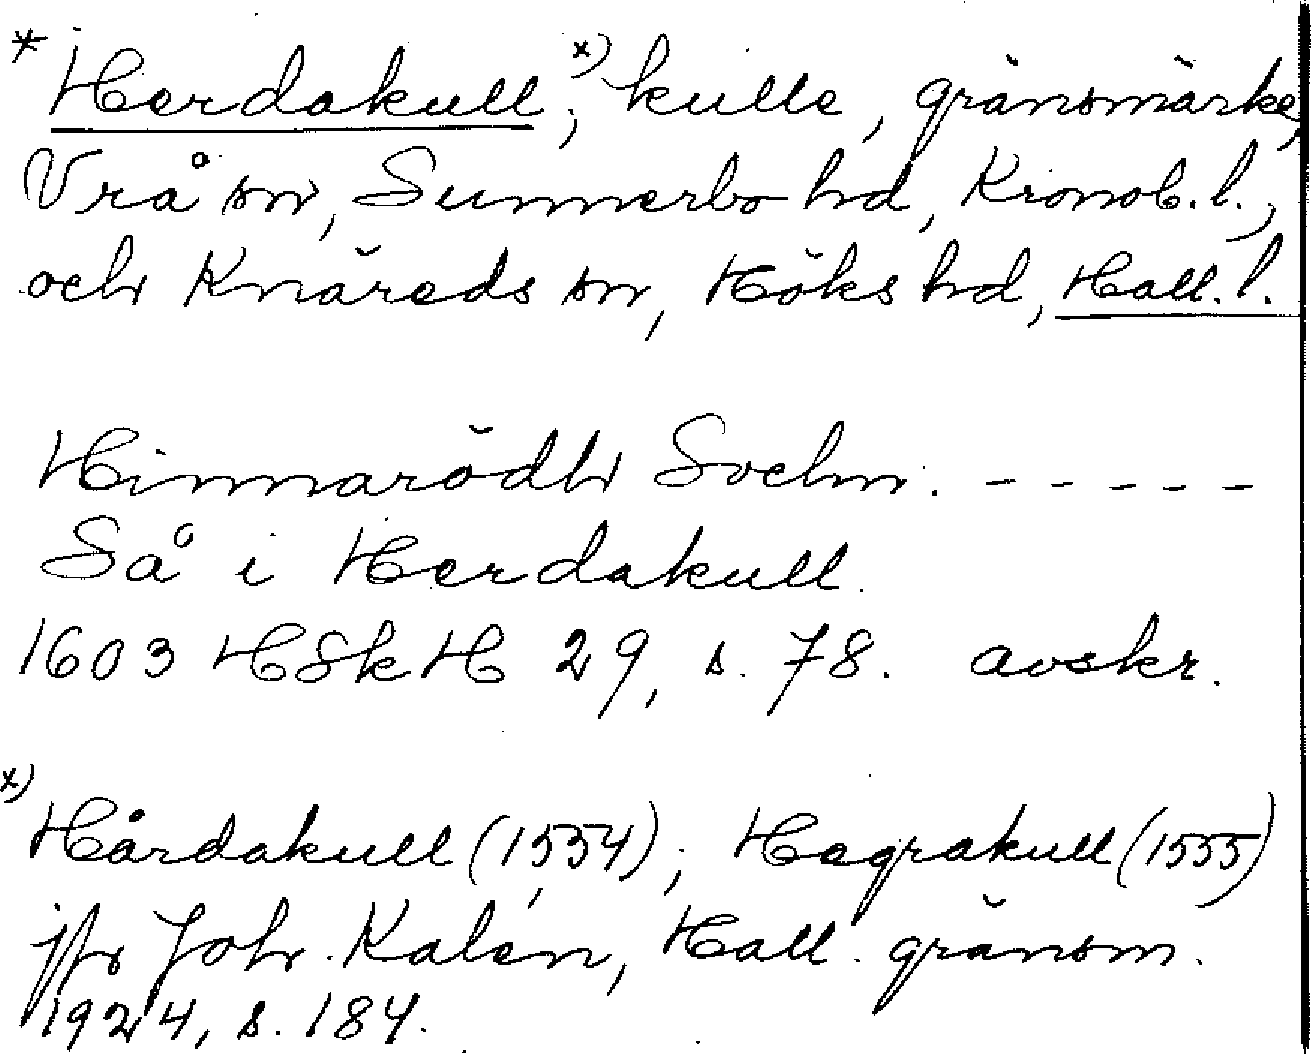 * Herdakull; x) kulle, gränsmärke,
Vrå sn, Sunnerbo hd, Kronob. l.,
och Knäreds sn, Höks hd, Hall. l.
Hinnarödh Sochn. - - - - -
Så i Herdakull.
1603 HSkH 29, s. 78. avskr.
x) Hårdakull (1554); Hegrakull (1555)
jfr Joh. Kalén, Hall. gränsm.
1924, s. 184.